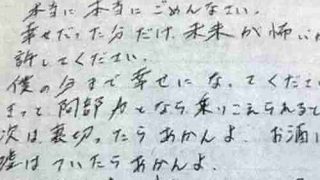 本当に本当にごめんなさい。
幸せだった分だけ、未来が怖い
許してください。
僕の分まで幸せになってくださ
きって阿部力となら乗りこえられると
次は裏切ったらあかんよ。お酒
嘘はついたらあかんよ。